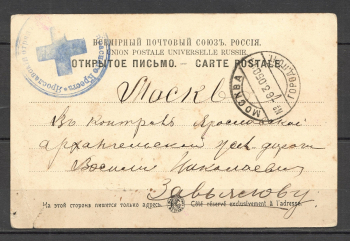 ВСЕМІРНЫЙ ПОЧТОВЫЙ СОЮЗЪ, РОССІЯ.
UNION POSTALE UNIVERSELLE RUSSIE
ОТКРЫТОЕ ПИСЬМО. — CARTE POSTALE
МОСКВА
Москва
Въ Контроль Ярославской
Архангельской жел. дороги
Василію Николаевичу
Завьялову
На этой сторонѣ пишется только адресъ.
Côté réservé exclusivement à l'adresse.